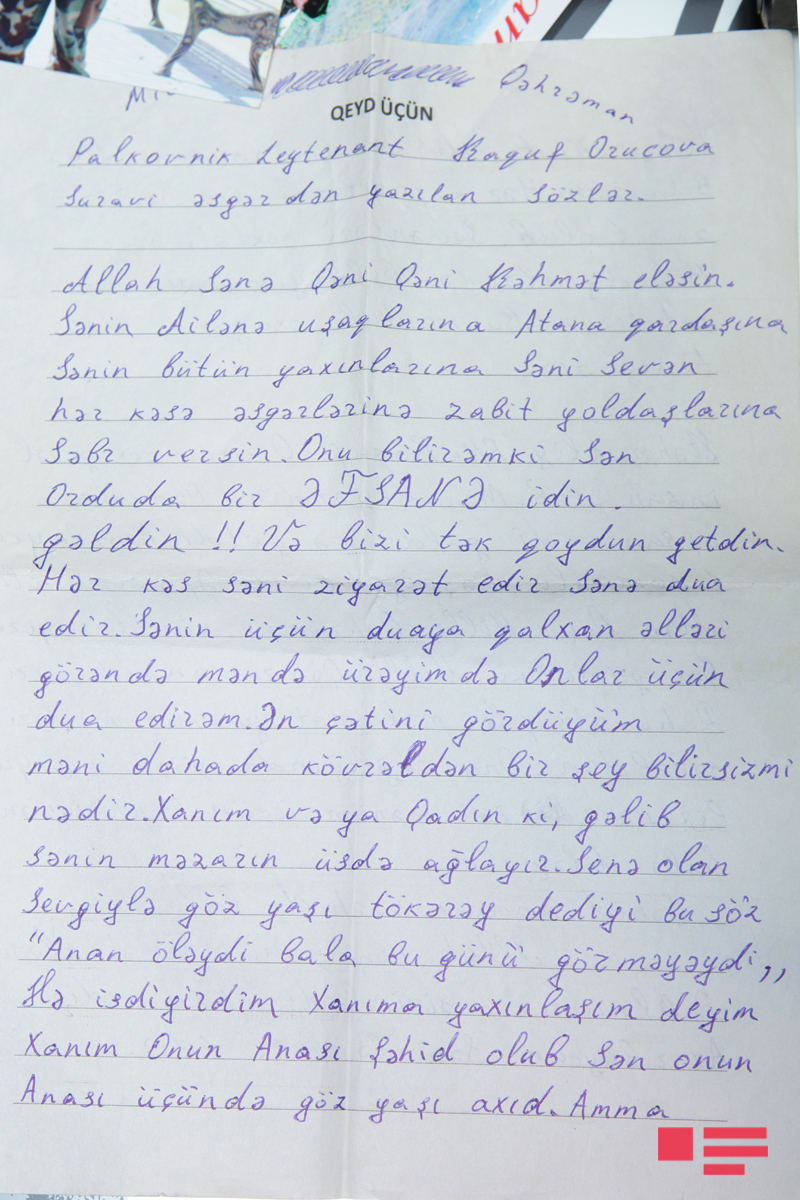 Qəhrəman
QEYD ÜÇÜN
Palkovnik Leytenant Raquf Orucova
suravi əsgərdən yazılan sözlər.
Allah Sənə Qəni Qəni Rəhmət eləsin.
Sənin Ailənə uşaqlarına Atana qardaşına
Sənin bütün yaxınlarına Səni Sevən
hər kəsə əsgərlərinə zabit yoldaşlarına
Səbr versin. Onu bilirəmki Sən
Orduda bir ƏFSANƏ idin.
gəldin !! Və bizi tək qoydun getdin.
Hər kəs səni ziyarət edir Sənə dua
edir. Sənin üçün duaya qalxan əlləri
görəndə məndə ürəyimdə Onlar üçün
dua edirəm. Ən çətini gördüyüm
məni dahada kövrəldən bir şey bilirsizmi
nədir. Xanım və ya Qadın ki, gəlib
sənin məzarın üsdə ağlayır. Senə olan
Sevgiylə göz yaşı tökərəy dediyi bu söz
"Anan öləydi bala bu günü görməyəydi,,
Hə isdiyirdim Xanıma yaxınlaşım deyim
Xanım Onun Anası Şəhid olub Sən onun
Anası üçündə göz yaşı axıd. Amma